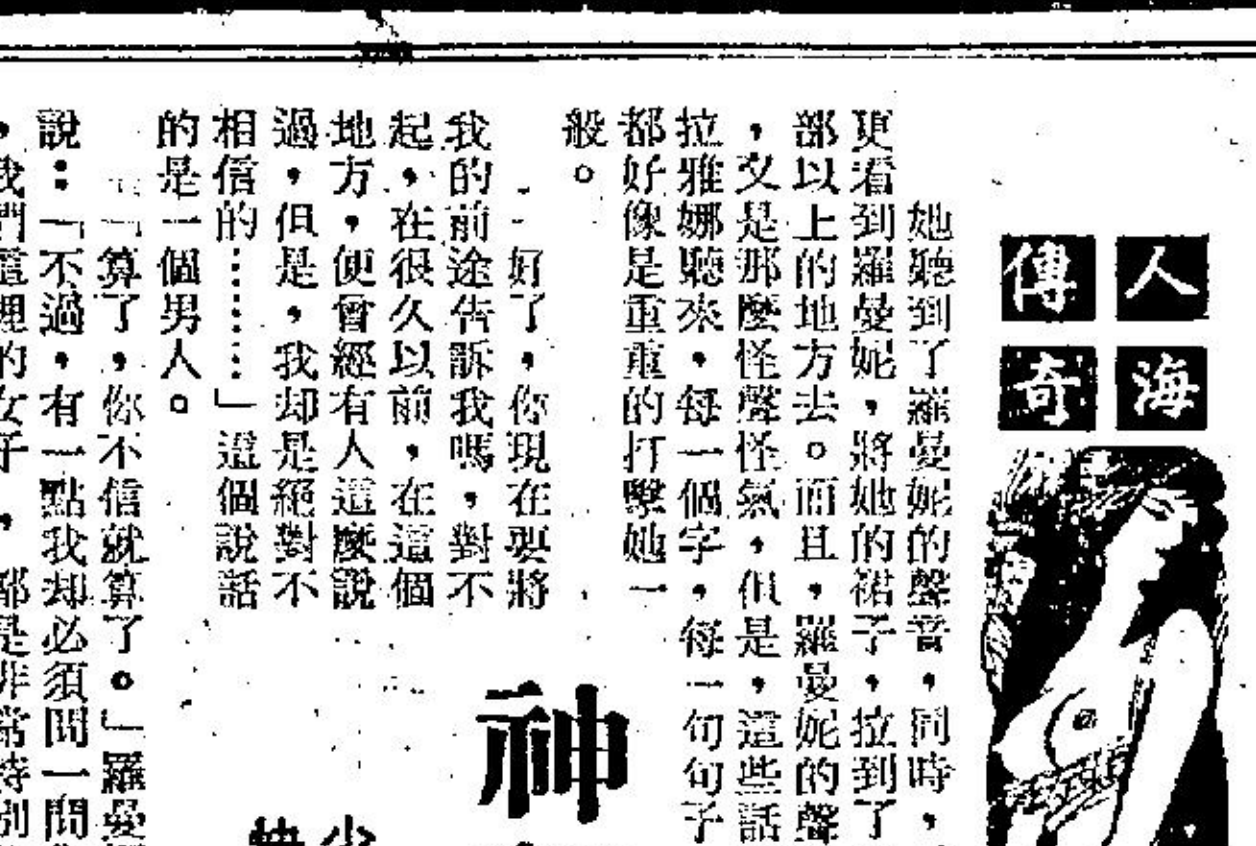 人海
傳奇
她聽到了羅曼妮的聲音,同時,
更看到羅曼妮,將她的裙子,拉到了
部以上的地方去。而且,羅曼妮的聲
,又是那麼怪聲怪氣,但是,這些話
拉雅娜聽來,每一個字,每一句句子
都好像是重重的打擊她一
般。
好了,你現在要將
我的前途告訴我嗎,對不
起,在很久以前,在這個
地方,便曾經有人這麼說
過,但是,我却是絕對不
相信的⋯⋯⋯」這個說話
的是一個男人。
「算了,你不信就算了。」羅曼
說:「不過,有一點我却必須問一問
,我們這裡的女子,都是非常特別
神